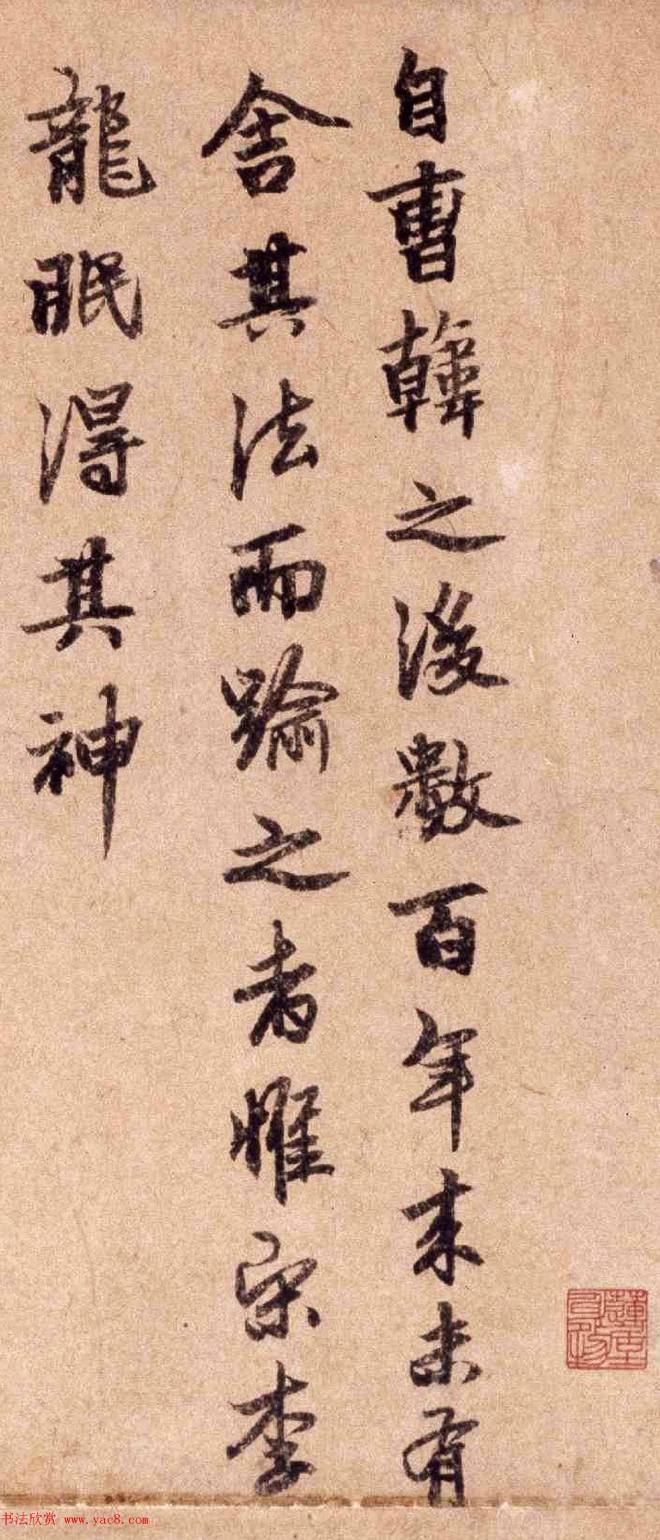 自曹韓之後數百年来未有
舍其法而踰之者惟宋李
龍眠得其神
书法欣赏 www.yac8.com